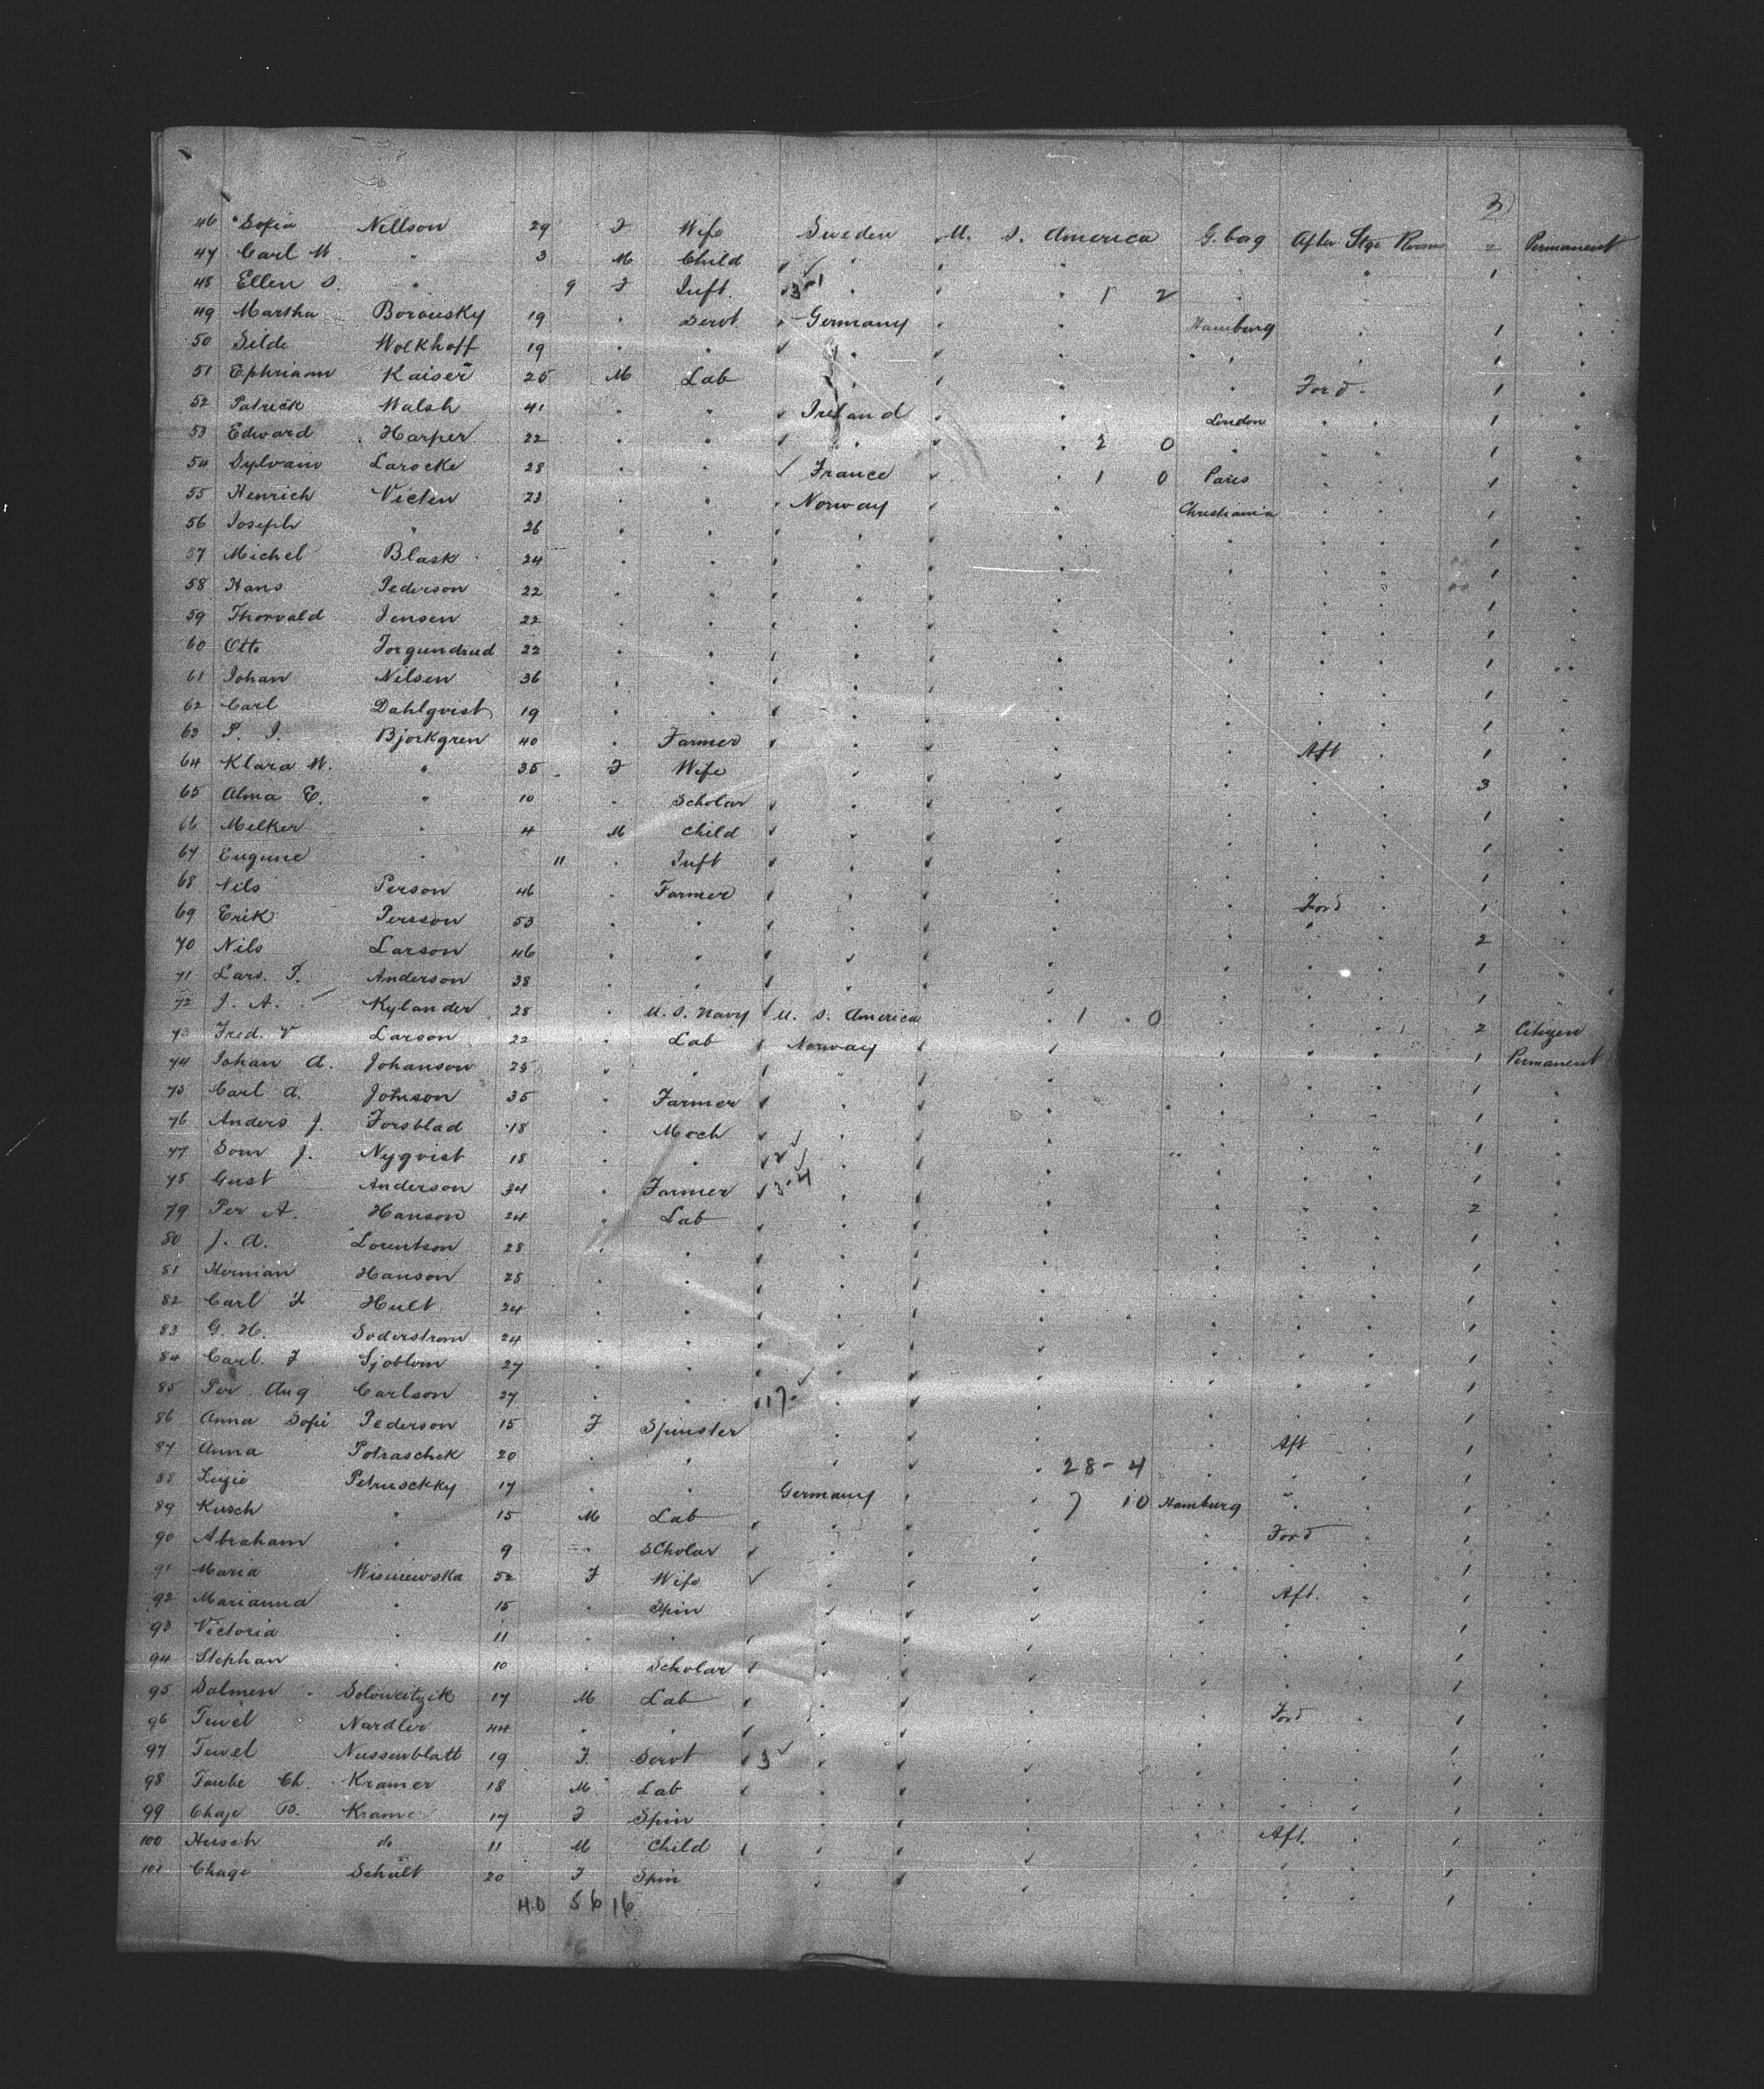 3
46 Sofia Nillson 29 F Wife Sweden U. S. America G.borg After Stge Room 2 Permanent
47 Carl W. " 3 M Child " " " " 1 "
48 Ellen S. " 9 F Inft. 3-1 " " " 1 2 " "
49 Martha Borousky 19 " Servt Germany " " Hamburg " 1 "
50 Silde Wolkhoff 19 " " " " " " " 1 "
51 Ephriam Kaiser 25 M Lab " " " " Ford 1 "
52 Patrick Walsh 41 " " Ireland " " London " " 1 "
53 Edward Harper 22 " " " " " 2 0 " " " 1 "
54 Sylvain Larocke 28 " " France " " 1 0 Paris " " 1 "
55 Henrich Victen 23 " " Norway " " Christiania " " 1 "
56 Joseph " 26 " " " " " " " " 1 "
57 Michel Blask 24 " " " " " " " " 1 "
58 Hans Pederson 22 " " " " " " " " 1 "
59 Thorvald Jensen 22 " " " " " " " " 1 "
60 Otto Jorgundrud 22 " " " " " " " " 1 "
61 Johan Nilsen 36 " " " " " " " " 1 "
62 Carl Dahlqvist 19 " " " " " " " " 1 "
63 P. J. Bjorkgren 40 " Farmer " " " " Aft " 1 "
64 Klara W. " 35 F Wife " " " " " " 3 "
65 Alma E. " 10 " Scholar " " " " " " 1 "
66 Melker " 4 M Child " " " " " " 1 "
67 Eugune " 11 " Inft " " " " " " 1 "
68 Nils Person 46 " Farmer " " " " Ford " 1 "
69 Erik Persson 53 " " " " " " " " 2 "
70 Nils Larson 46 " " " " " " " " 1 "
71 Lars. P. Anderson 38 " " " " " " " " 1 "
72 J. A. Kylander 28 " U. S. Navy U. S. America " 1 0 " " " 2 Citizen
73 Fred. V Larson 22 " Lab Norway " " " " " 1 Permanent
74 Johan A. Johanson 25 " " " " " " " " 1 "
75 Carl A. Johnson 35 " Farmer " " " " " " 1 "
76 Anders J. Forsblad 18 " Mech " " " " " " 1 "
77 Som J. Nyqvist 18 " " 2 " " " " " " 1 "
78 Gust Anderson 34 " Farmer 3-4 " " " " " " 2 "
79 Per A. Hanson 24 " Lab " " " " " " 1 "
80 J. A. Lorentson 28 " " " " " " " " 1 "
81 Herman Hanson 28 " " " " " " " " 1 "
82 Carl F Hult 24 " " " " " " " " 1 "
83 G. H. Soderstrom 24 " " " " " " " " 1 "
84 Carl. F Sjoblom 27 " " " " " " " " 1 "
85 Per Aug Carlson 27 " " 17 " " " " " " 1 "
86 Anna Sofie Pederson 15 F Spinster " " " " Aft 1 "
87 Anna Potraschek 20 " " " " " 28-4 " " 1 "
88 Petruschky 17 " " Germany " " 7 10 Hamburg " 1 "
89 Kusch " 15 M Lab " " " " Ford 1 "
90 Abraham " 9 " Scholar " " " " " " 1 "
91 Maria Wisniewska 52 F Wife " " " " Aft. " 1 "
92 Marianna " 15 " Spin " " " " " " 1 "
93 Victoria " 11 " " " " " " " " 1 "
94 Stephan " 10 " Scholar " " " " " " 1 "
95 Salmen Soloweitzik 17 M Lab " " " " Ford " 1 "
96 Tewel Nardler 44 " " " " " " " " 1 "
97 Tewel Nussenblatt 19 F. Servt 3 " " " " " " 1 "
98 Taube Ch. Kramer 18 M Lab " " " " " " 1 "
99 Chaje B. Kramer 17 F Spin " " " " Aft. " 1 "
100 Husch do 11 M Child " " " " " " 1 "
101 Chage Schult 20 F Spin " " " " " " 1 "
40 56 16